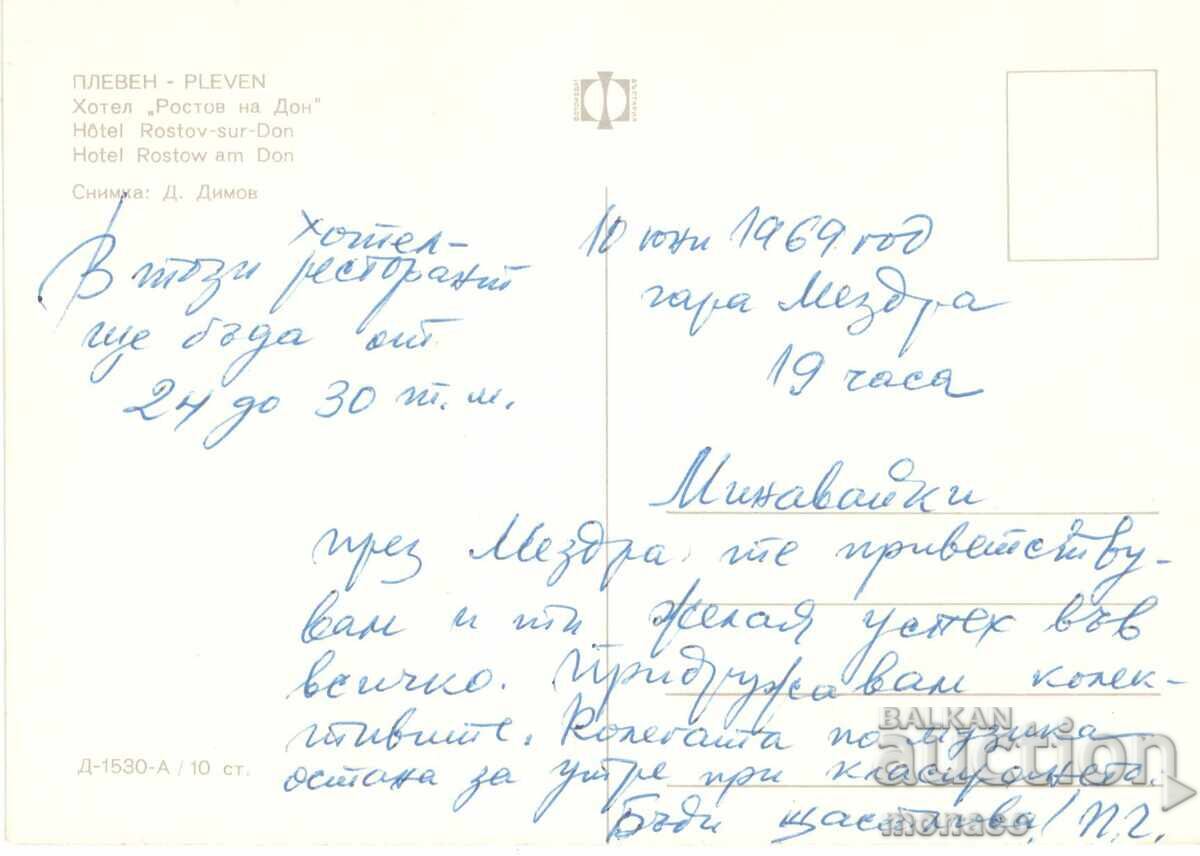 ПЛЕВЕН - PLEVEN
Хотел „Ростов на Дон"
Hôtel Rostov-sur-Don
Hotel Rostow am Don
Снимка: Д. Димов
ФОТОИЗДАТ БЪЛГАРИЯ
хотел-
В този ресторант
ще бъда от
24 до 30 т.м.
10 юни 1969 год
гара Мездра
19 часа
Минавайки
през Мездра те приветству-
вам и ти желая успех във
всичко. Придружавам колек-
тивите. Колегата по музика
остана за утре при класирането.
Бъди щастлива! П.Г.
Д-1530-А / 10 ст.
BALKAN
auction
monaco